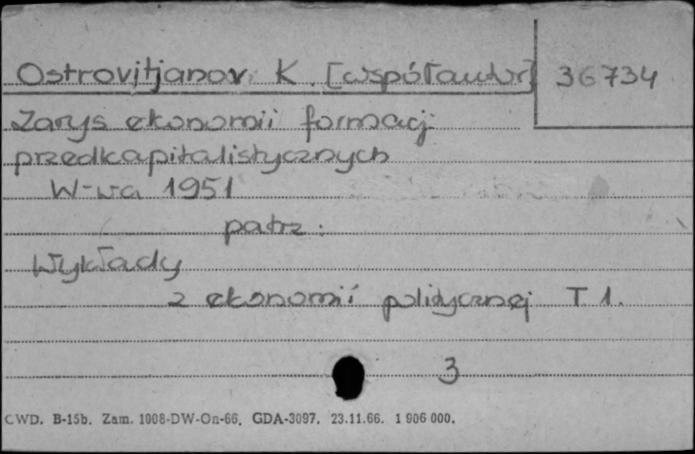 Ostrovitjanov K. [współautor] 36734
Zarys ekonomii formacji
przedkapitalistycznych
W-wa 1951
patrz:
Wykłady
z ekonomii politycznej T 1.
3
CWD. B-15b. Zam. 1008-DW-On-66. GDA-3097. 23.11.66. 1 906 000.